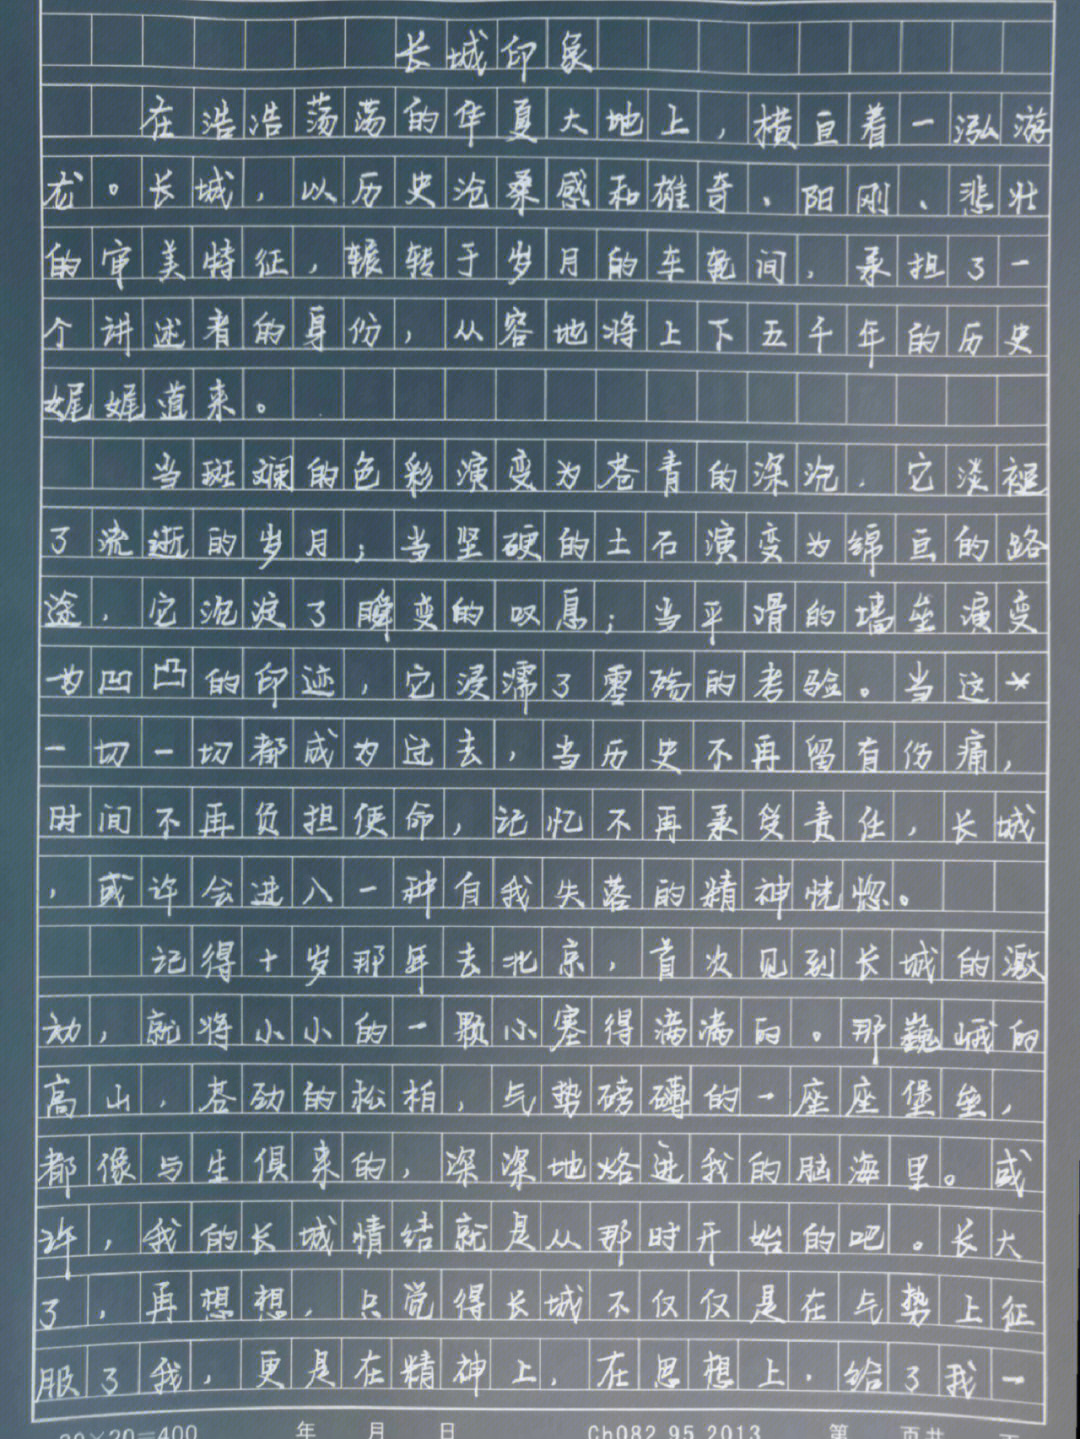 长城印象
在浩浩荡荡的华夏大地上，横亘着一泓游
龙。长城，以历史沧桑感和雄奇、阳刚、悲壮
的审美特征，辗转于岁月的车轮间，承担了一
个讲述者的身份，从容地将上下五千年的历史
娓娓道来。
当斑斓的色彩演变为苍青的深沉，它淡褪
了流逝的岁月；当坚硬的土石演变为绵亘的路
途，它沉淀了瞬变的叹息；当平滑的墙垒演变
为凹凸的印迹，它浸濡了零殇的考验。当这
一切一切都成为过去，当历史不再留有伤痛，
时间不再负担使命，记忆不再承受责任，长城
，或许会进入一种自我失落的精神恍惚。
记得十岁那年去北京，首次见到长城的激
动，就将小小的一颗心塞得满满的。那巍峨的
高山，苍劲的松柏，气势磅礴的一座座堡垒，
都像与生俱来的，深深地烙进我的脑海里。或
许，我的长城情结就是从那时开始的吧。长大
了，再想想，只觉得长城不仅仅是在气势上征
服了我，更是在精神上，在思想上，给了我一
20×20=400 年 月 日 Ch082.95.2013 第 页共